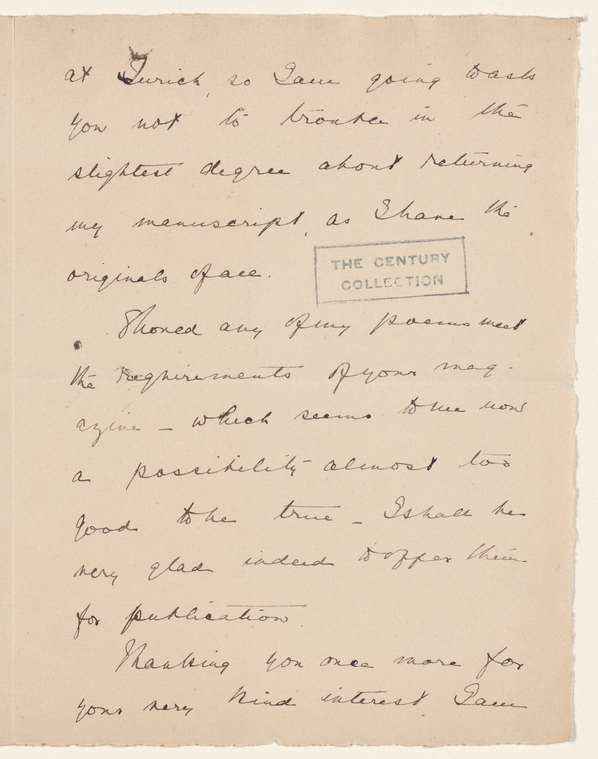 at Zurich, so I am going to ask
you not to trouble in the
slightest degree about returning
my manuscript, as I have the
originals of all.
THE CENTURY
COLLECTION
Should any of my poems meet
the requirements of your mag-
azine – which seems to me now
a possibility almost too
good to be true – I shall be
very glad indeed to offer them
for publication.
Thanking you once more for
your very kind interest I am